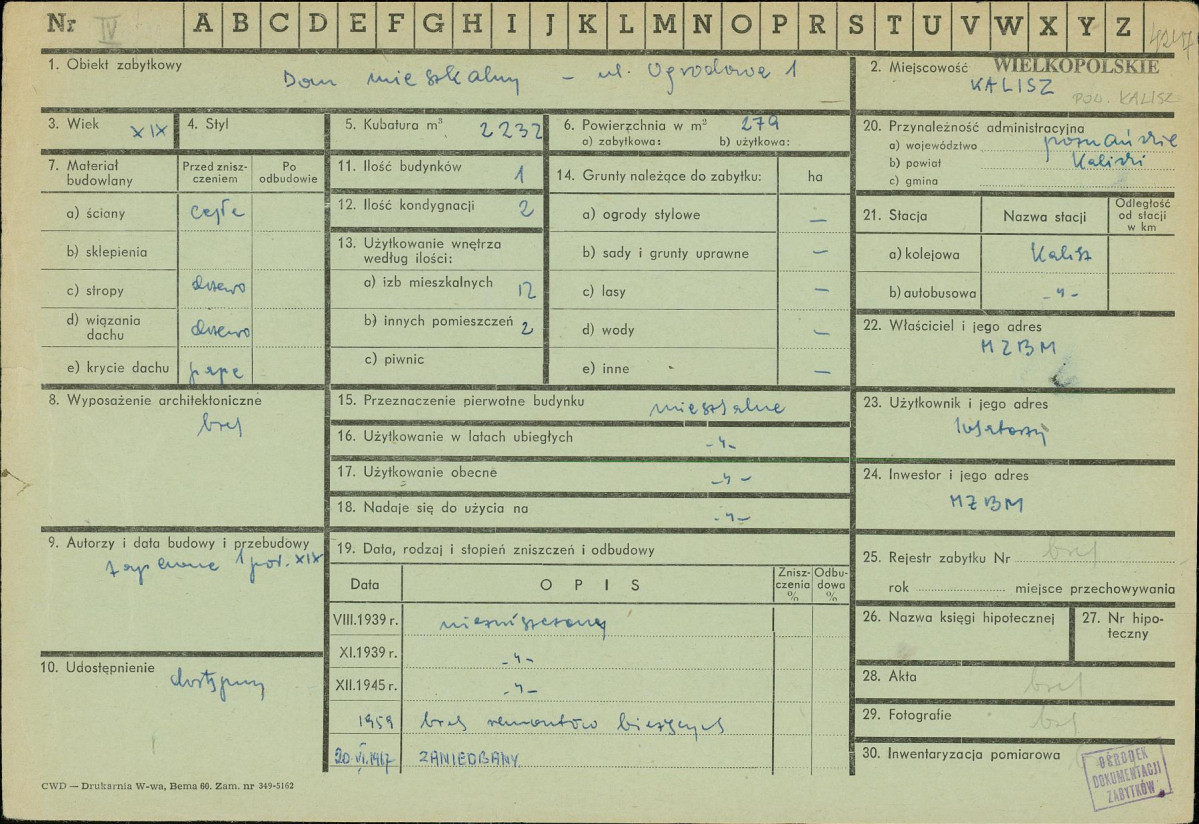 Nr IV A B C D E F G H I J K L M N O P R S T U V W X Y Z
1. Obiekt zabytkowy Dom mieszkalny – ul. Ogrodowa 1
2. Miejscowość WIELKOPOLSKIE
KALISZ
POW. KALISZ
3. Wiek XIX
4. Styl
5. Kubatura m³ 2232
6. Powierzchnia w m² 279
a) zabytkowa: b) użytkowa:
20. Przynależność administracyjna
a) województwo poznańskie
b) powiat Kaliski
c) gmina
7. Materiał budowlany
Przed znisz-
czeniem
Po
odbudowie
a) ściany cegła
b) sklepienia
c) stropy drzewo
d) wiązania
dachu drzewo
e) krycie dachu papa
11. Ilość budynków 1
12. Ilość kondygnacji 2
13. Użytkowanie wnętrza
według ilości:
a) izb mieszkalnych 12
b) innych pomieszczeń 2
c) piwnic
14. Grunty należące do zabytku: ha
a) ogrody stylowe —
b) sady i grunty uprawne —
c) lasy —
d) wody —
e) inne —
21. Stacja Nazwa stacji
Odległość
od stacji
w km
a) kolejowa Kalisz
b) autobusowa -"-
22. Właściciel i jego adres
MZBM
8. Wyposażenie architektoniczne
brak
15. Przeznaczenie pierwotne budynku mieszkalne
16. Użytkowanie w latach ubiegłych -"-
17. Użytkowanie obecne -"-
18. Nadaje się do użycia na -"-
23. Użytkownik i jego adres
lokatorzy
24. Inwestor i jego adres
MZBM
9. Autorzy i data budowy i przebudowy
zapewne 1 poł. XIX
10. Udostępnienie
dostępny
19. Data, rodzaj i stopień zniszczeń i odbudowy
Data O P I S
Znisz-
czenia
%
Odbu-
dowa
%
VIII.1939 r. niezniszczony
XI.1939 r. -"-
XII.1945 r. -"-
1959 brak remontów bieżących
20.VI.1967 ZANIEDBANY
25. Rejestr zabytku Nr brak
rok miejsce przechowywania
26. Nazwa księgi hipotecznej
27. Nr hipo-
teczny
28. Akta brak
29. Fotografie brak
30. Inwentaryzacja pomiarowa
OŚRODEK
DOKUMENTACJI
ZABYTKÓW
CWD — Drukarnia W-wa, Bema 60. Zam. nr 349-5162